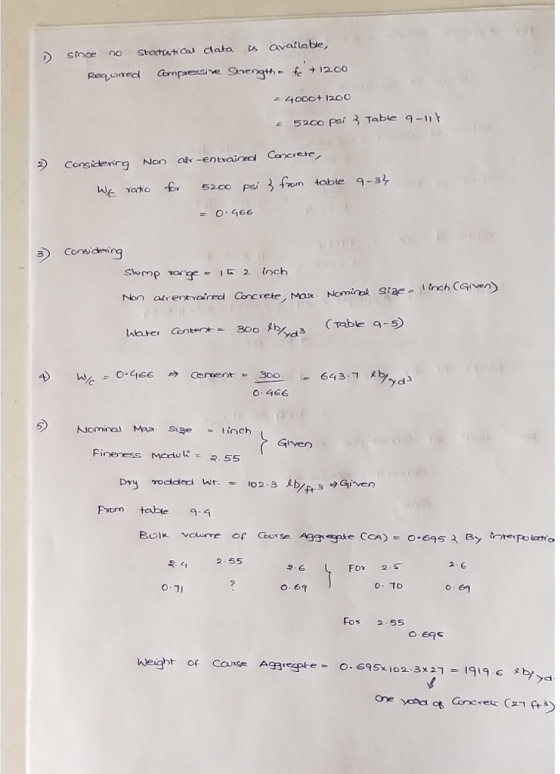 1) Since no statistical data is available,
Required Compressive Strength = fc' + 1200
= 4000 + 1200
= 5200 psi } Table 9-11}
2) Considering Non air-entrained Concrete,
W/c ratio for 5200 psi } from table 9-3}
= 0.466
3) Considering
Slump range = 1 to 2 inch
Non air entrained Concrete, Max. Nominal Size = 1 inch (Given)
Water Content = 300 lb/yd³ (Table 9-5)
4) W/c = 0.466 ⇒ Cement = 300/0.466 = 643.7 lb/yd³
5) Nominal Max. Size = 1 inch } Given
Fineness Moduli = 2.55
Dry rodded Wt. = 102.3 lb/ft³ → Given
From table 9.4
Bulk volume of Course Aggregate (CA) = 0.695 } By interpolation
2.4 2.55 2.6 } For 2.5 2.6
0.71 ? 0.69 0.70 0.69
For 2.55
0.695
Weight of Course Aggregate = 0.695x102.3x27 = 1919.6 lb/yd
↓
One yard of Concrete (27 ft³)